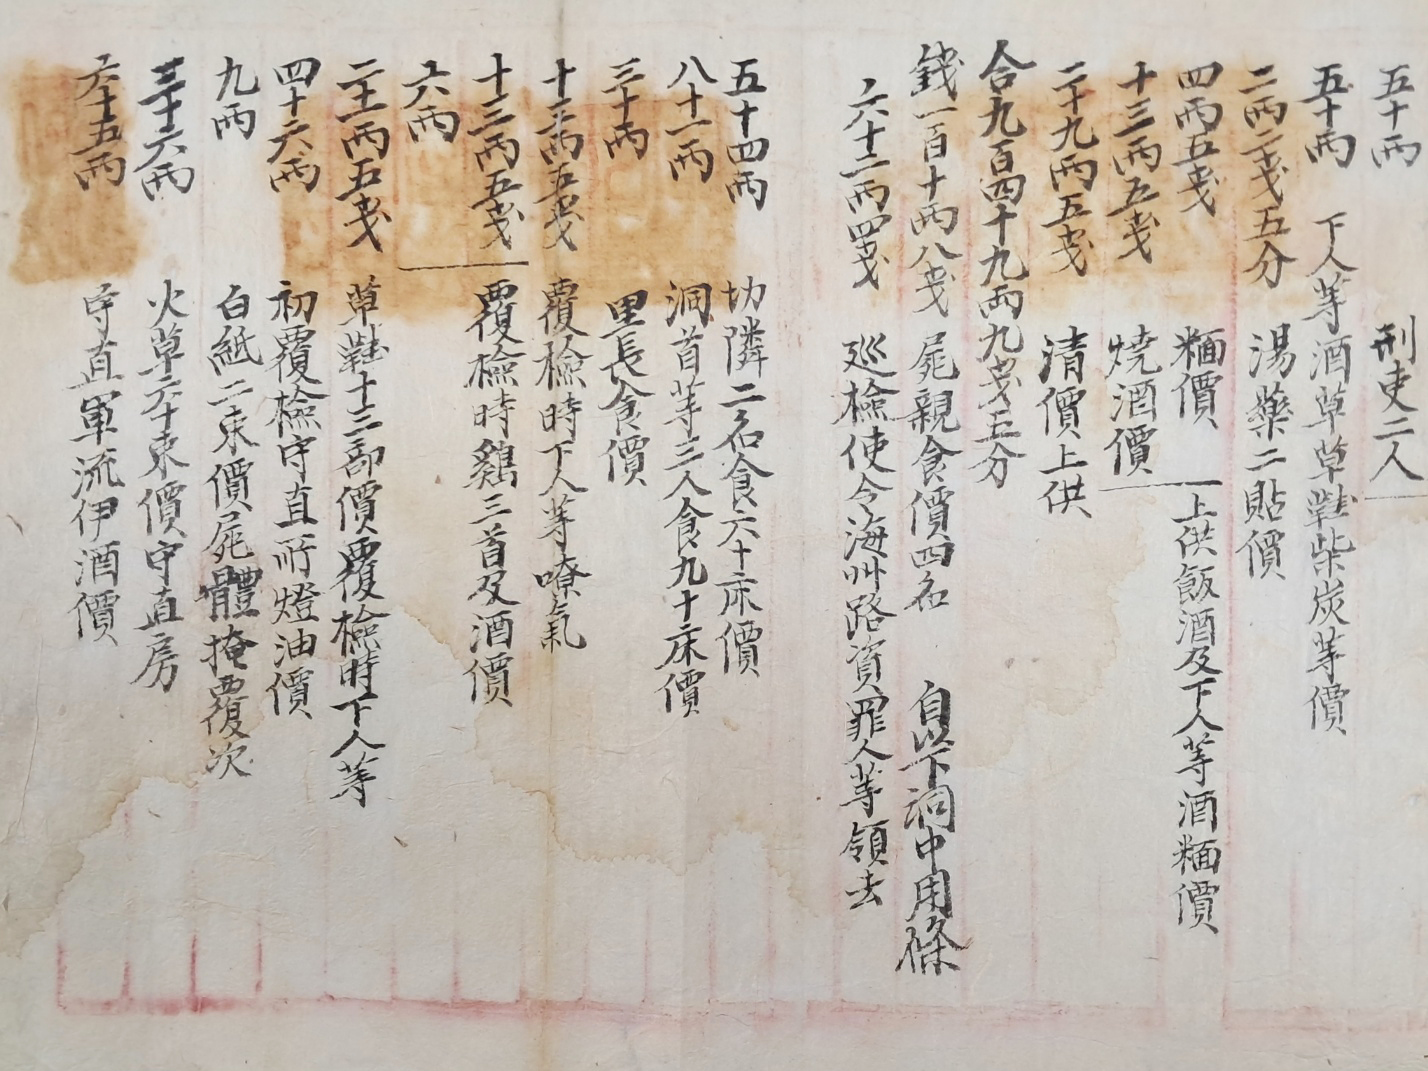 五十兩 刑吏二人
五十兩 下人等酒草草鞋柴炭等價
二兩二戔五分 湯藥二貼價
四兩五戔 糆價 上供飯酒及下人等酒糆價
十三兩五戔 燒酒價
二十九兩五戔 清價上供
合九百四十九兩九戔五分
錢一百十兩八戔 屍親食價四名 自以下洞中用條
六十二兩四戔 巡檢使令海州路資罪人等領去
五十四兩 切隣二名食六十床價
八十一兩 洞首等三人食九十床價
三十兩 里長食價
十三兩五戔 覆檢時下人等嘹氣
十三兩五戔 覆檢時鷄三首及酒價
六兩
二十二兩五戔 草鞋十三部價覆檢時下人等
四十六兩 初覆檢守直所燈油價
九兩 白紙二束價屍體掩覆次
三十六兩 火草六十束價守直房
六十五兩 守直軍流伊酒價